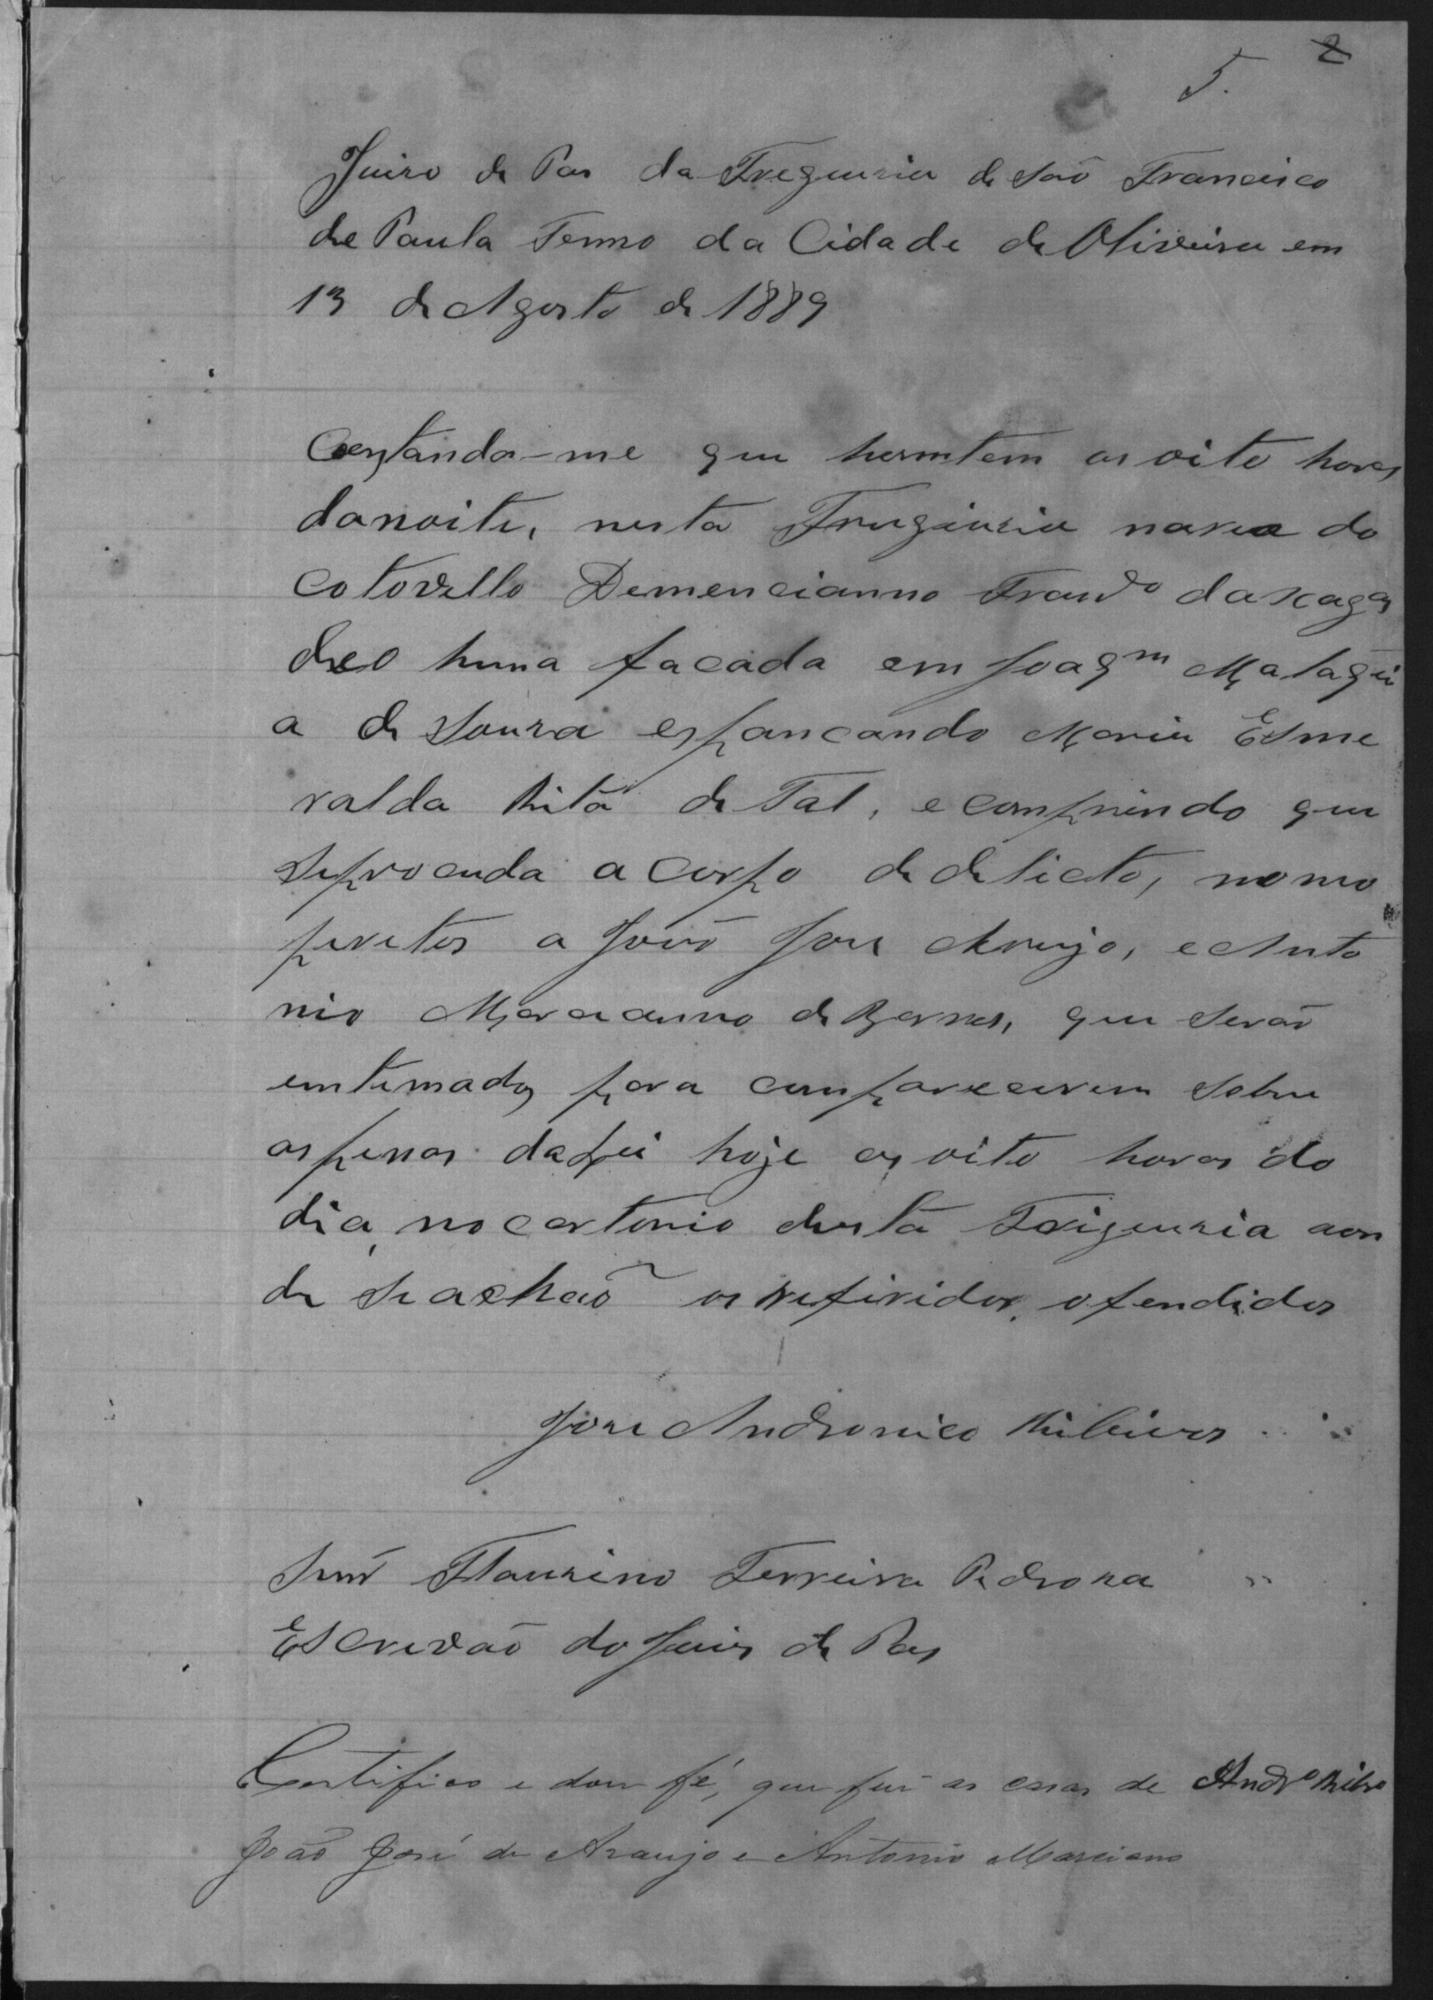 5. 2
Juizo de Pas da Freguesia de São Francisco
de Paula Termo da Cidade de Oliveira em
13 de Agosto de 1889
Constando-me que hointem as oito horas
danoite, nesta Freguisia narua do
Cotovello Demencianno da
deo huma facada em Joaqm
a de Souza espancando Maria Esme
ralda Rita de Tal, e comprindo que
seproceda a Corpo de delicto, nomeo
peretos a João Jose Araujo, e Anto
nio Marcianno de Barros, que serão
emtimados para comparecerem sobre
aspenas dalei hoje as oito horas do
dia, nocartorio desta Freiguesia aon
de se achão os refiridos ofendidos
Jose Andronico Ribeiro
Snr Flausino Ferreira Pedroza
Escrivão do Juis de Pas
Certifico e dou fé, que fui as casas de Andro Ribro
João José de Araujo e Antonio Marciano